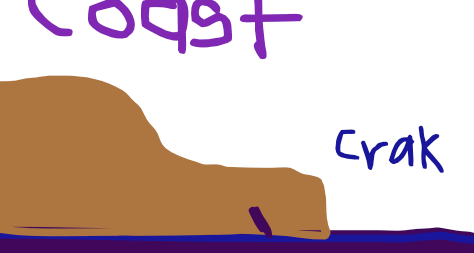 Coast
Crak